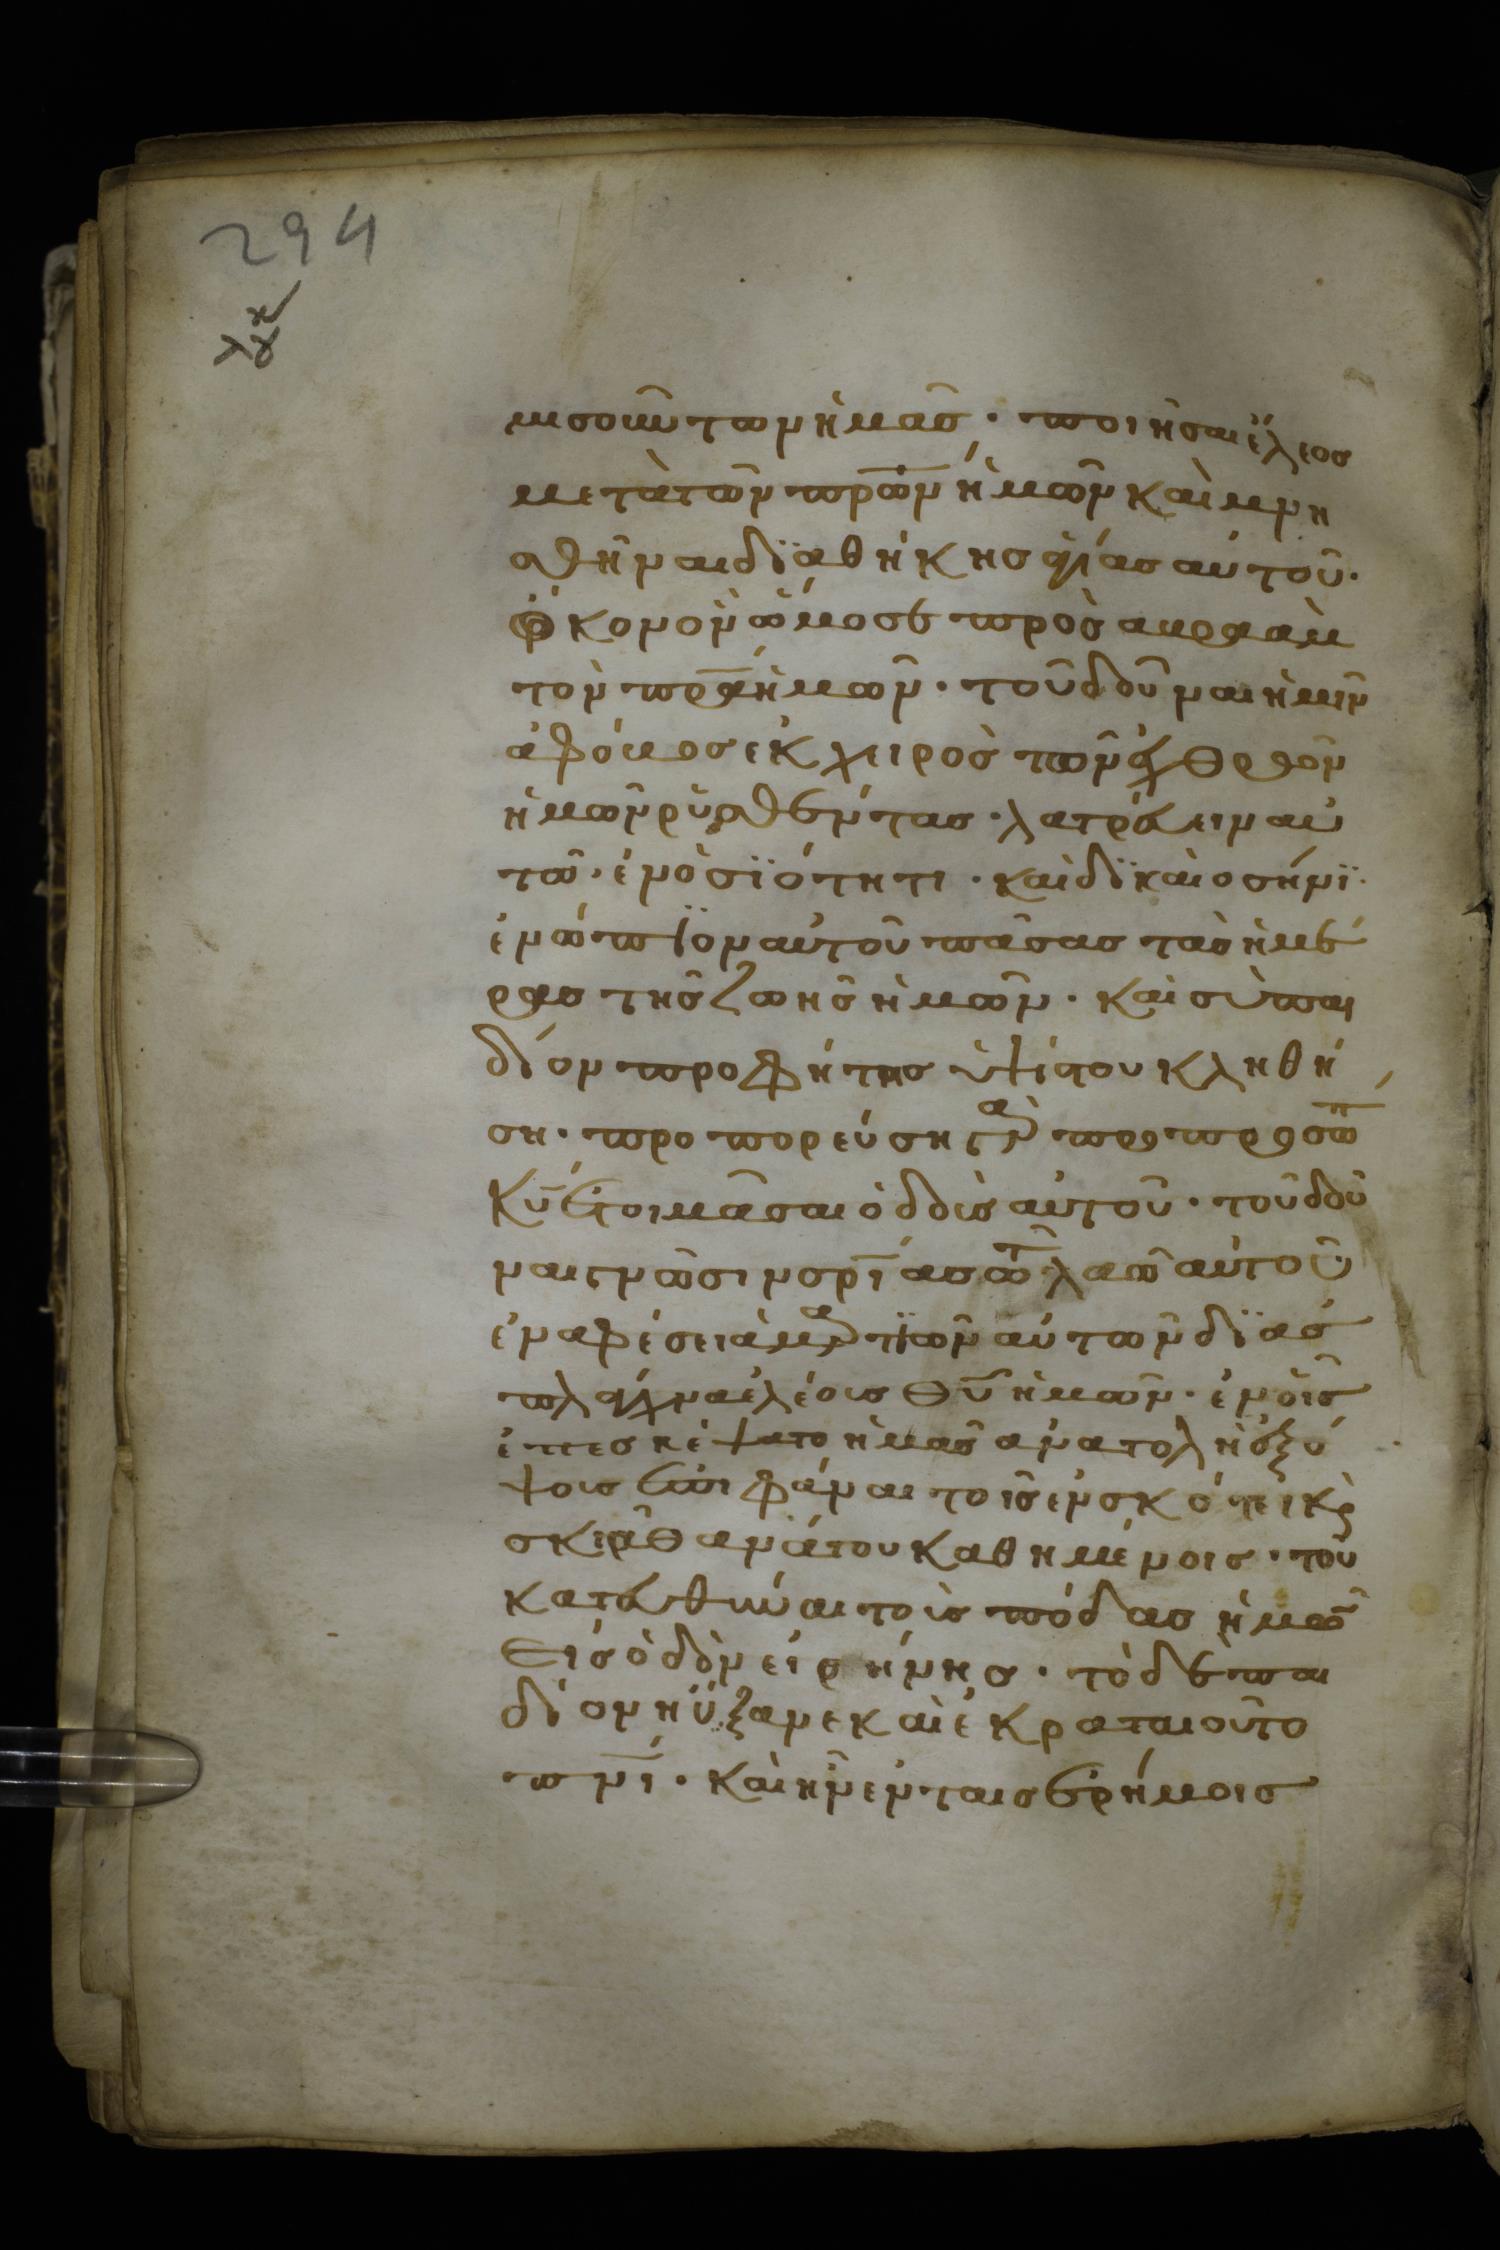 294
μισούντων ἡμᾶς· ποιῆσαι ἔλεος
μετὰ τῶν πρω̅ν ἡμῶν καὶ μνη
σθῆναι διαθήκης ἁγίας αὐτοῦ·
ὅρκον ὃν ὤμοσε πρὸς αβραὰμ
τὸν πρ̅α ἡμῶν· τοῦ δοῦναι ἡμῖν
ἀφόβος ἐκ χειρὸς τῶν ἐχθρῶν
ἡμῶν ῥυσθέντας· λατρεύειν αὐ
τῶ· ἐν ὁσϊότητι· καὶ δϊκαιοσύνϊ·
ἐνώπϊον αὐτοῦ πάσας τὰς ἡμέ
ρας τῆς ζωῆς ἡμῶν· καὶ σὺ παι
δίον προφήτης ὑψίστου κληθή
ση· προπορεύση γὰρ πρὸ προσώπ
κυ̅ ἑτοιμᾶσαι ὁδοὺς αὐτοῦ· τοῦ δοῦ
ναι γνῶσιν σρι̅ας τῶ λαῶ αὐτοῦ·
ἐν ἀφέσει ἁμαρτϊῶν αὐτῶν δϊὰ σ
πλάγχνα ἐλέους θυ̅ ἡμῶν· ἐν οἷς
ἐπεσκέψατο ἡμᾶς ἀνατολὴ ἐξ ὕ
ψους ἐπιφάναι τοῖς ἐν σκότει κὶ
σκιᾶ θανάτου καθημένοις· τοῦ
κατευθύναι τοὺς πόδας ἡμῶν
εἰς ὁδὸν εἰρήνης· τὸ δὲ παι
δίον ηὔξανεν καὶ ἐκραταιοῦτο
πνι̅· καὶ ἦν ἐν ταῖς ἐρήμοις